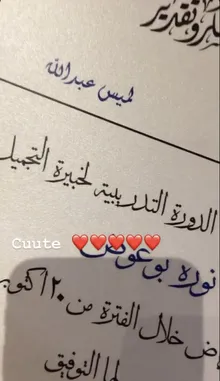 شكر وتقدير
لميس عبدالله
الدورة التدريبية لخبيرة التجميل
Cuute ❤️❤️❤️❤️❤️
نوره بوعوض
خلال الفترة من ٢٠ أكتوبر
لها التوفيق